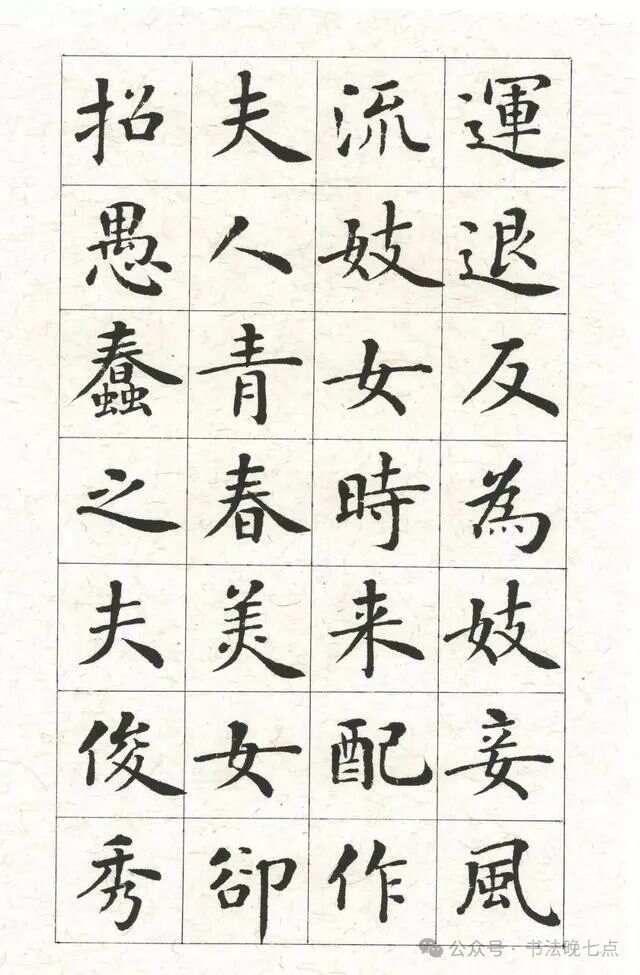 運退反為妓妾風
流妓女時来配作
夫人青春美女卻
招愚蠢之夫俊秀
公众号·书法晚七点